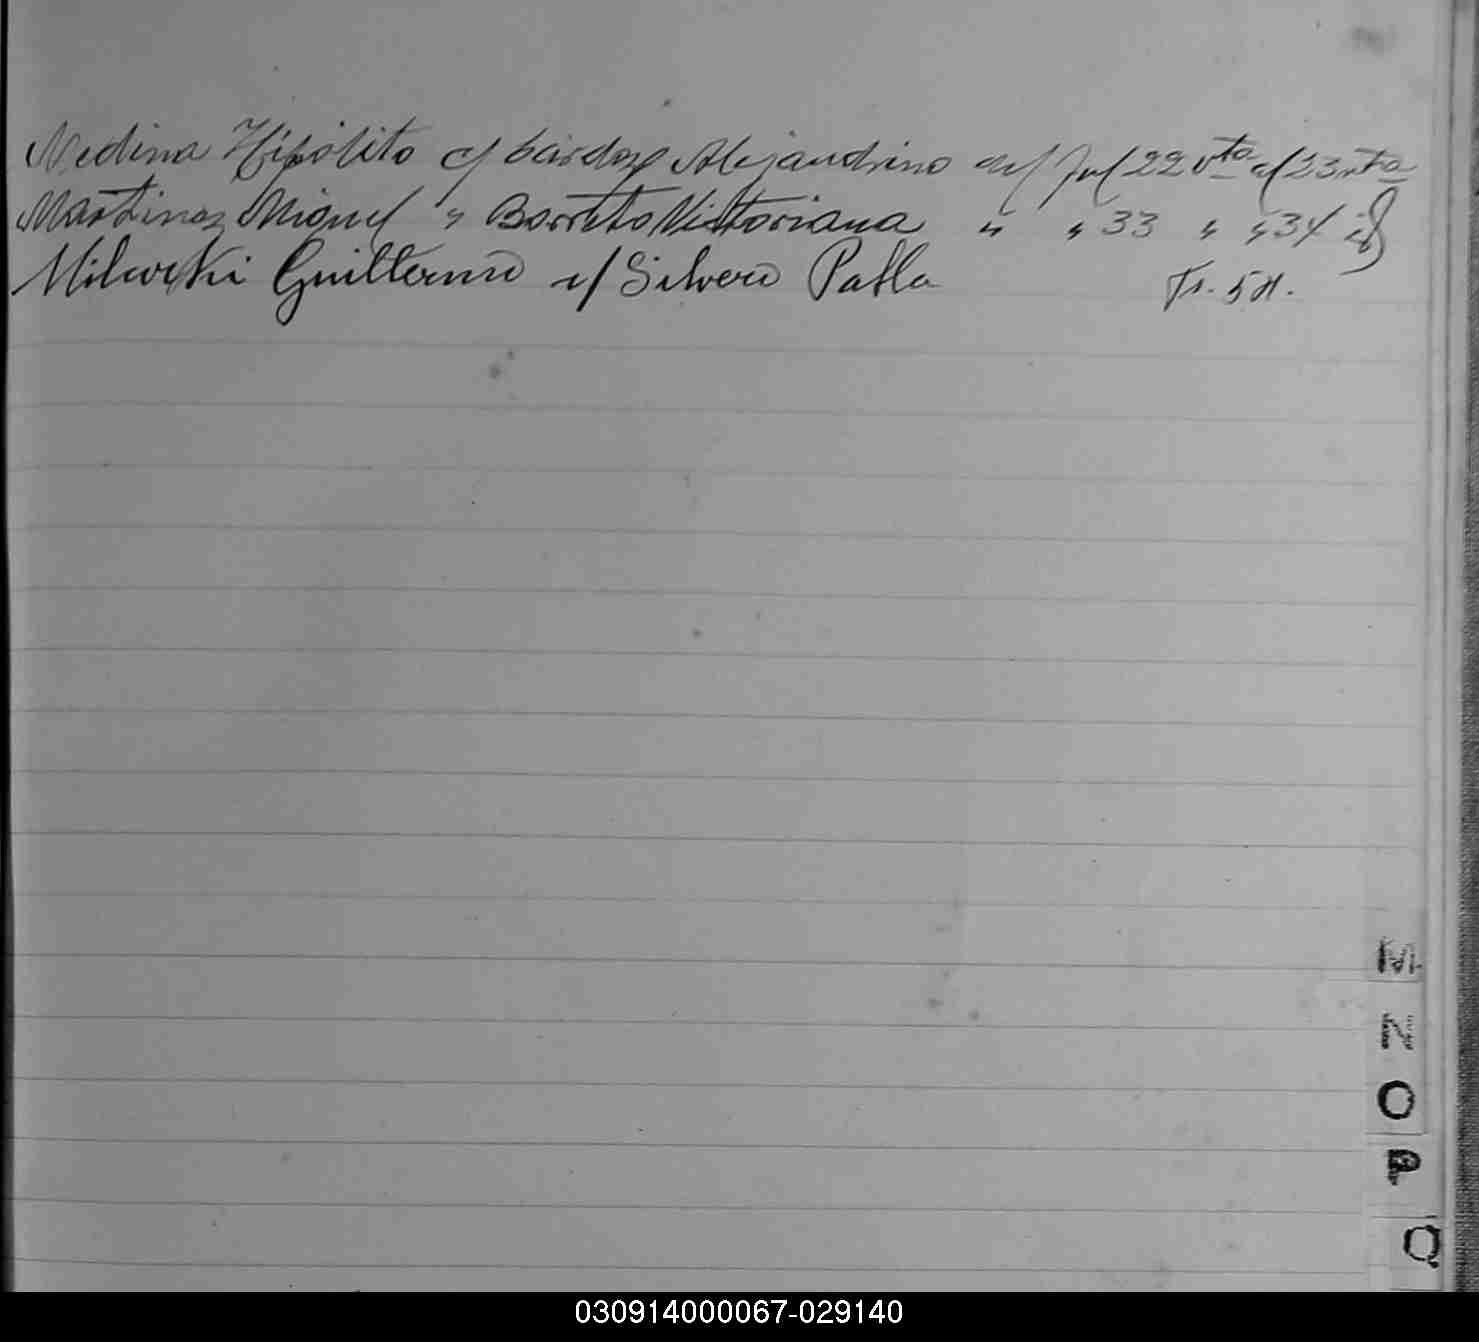 Medina Hipólito c/ Cardozo Alejandrino en/ Jul 22 vta al 23 vta
Martinez Miguel " Barreto Victoriana " " 33 " " 34 id
Milevski Guillermo c/ Silvero Pabla Fs. 51.
M
N
O
P
Q
030914000067-029140